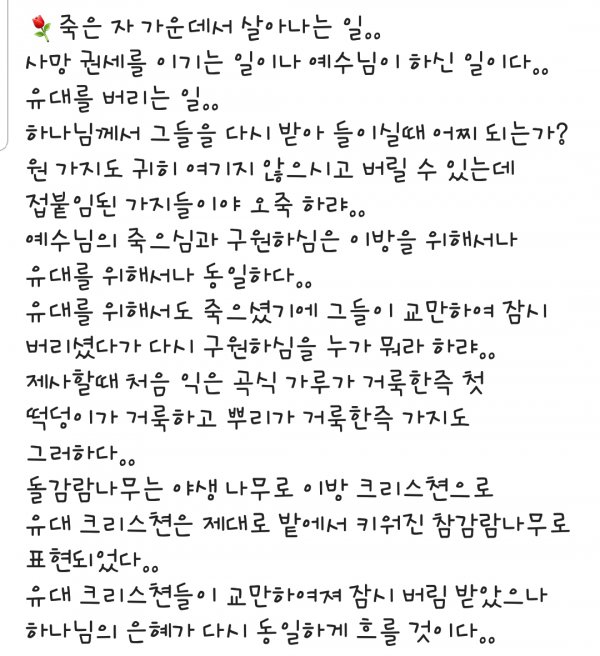 🌹죽은 자 가운데서 살아나는 일。。
사망 권세를 이기는 일이나 예수님이 하신 일이다。。
유대를 버리는 일。。
하나님께서 그들을 다시 받아 들이실때 어찌 되는가?
원 가지도 귀히 여기지 않으시고 버릴 수 있는데
접붙임된 가지들이야 오죽 하랴。。
예수님의 죽으심과 구원하심은 이방을 위해서나
유대를 위해서나 동일하다。。
유대를 위해서도 죽으셨기에 그들이 교만하여 잠시
버리셨다가 다시 구원하심을 누가 뭐라 하랴。。
제사할때 처음 익은 곡식 가루가 거룩한즉 첫
떡덩이가 거룩하고 뿌리가 거룩한즉 가지도
그러하다。。
돌감람나무는 야생 나무로 이방 크리스쳔으로
유대 크리스쳔은 제대로 밭에서 키워진 참감람나무로
표현되었다。。
유대 크리스쳔들이 교만하여져 잠시 버림 받았으나
하나님의 은혜가 다시 동일하게 흐를 것이다。。